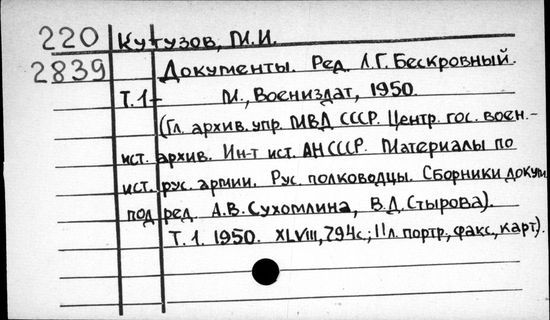 220 Кутузов, М.И.
2839 Документы. Ред. Л.Г. Бескровный.
Т.1- М., Воениздат, 1950.
(Гл. архив. упр. МВД СССР. Центр. гос. воен.-
ист. архив. Ин-т ист. АН СССР. Материалы по
ист. рус. армии. Рус. полководцы. Сборники докум.
под ред. А.В. Сухомлина, В.Д. Стырова).
Т.1. 1950. XLVIII, 794с.; 11л. портр, факс, карт).